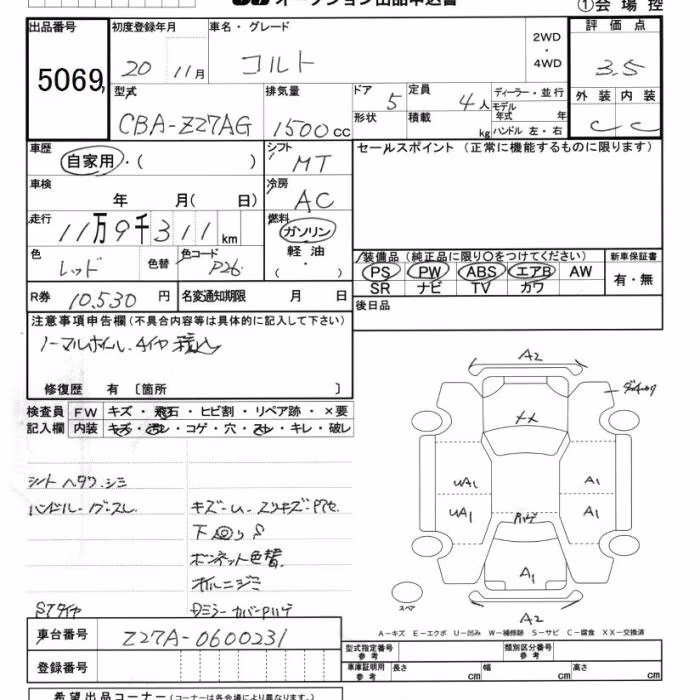 オークション出品申込書
①会場控
出品番号 初度登録年月 車名・グレード 2WD・4WD 評価点
5069 20 11月 コルト 3.5
型式 排気量 ドア 定員 ディーラー・並行 外装 内装
CBA-Z27AG 1500cc 5 4人 モデル年式 年 C C
形状 積載 kg ハンドル 左・右
車歴 シフト セールスポイント (正常に機能するものに限ります)
自家用・( ) MT
車検 冷房
年 月( 日) AC
走行 燃料
11万9千311km ガソリン
色 色替 色コード 軽油
レッド P26 ( ・ )
装備品 (純正品に限り〇をつけてください) 新車保証書
PS PW ABS エアB AW 有・無
SR ナビ TV カワ
R券 10,530円 名変通知期限 月 日 後日品
注意事項申告欄 (不具合内容等は具体的に記入して下さい)
ノーマルホイル、タイヤ積込
修復歴 有 〔箇所 〕
検査員 FW キズ・飛石・ヒビ割・リペア跡・×要
記入欄 内装 キズ・汚レ・コゲ・穴・スレ・キレ・破レ
A2
UA1 A1
UA1 A1
A1
A2
スペア
シート ヘタリ、シミ
ハンドル
下回りS
ボンネット色替
STタイヤ
A−キズ E−エクボ U−凹み W−補修跡 S−サビ C−腐食 XX−交換済
車台番号 Z27A-0600231
型式指定番号 参考 類別区分番号 参考
登録番号
車庫証明用 参考 長さ cm 幅 cm 高さ cm
希望出品コーナー (コーナーは各会場により異なります。)